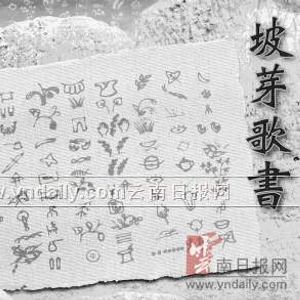 坡芽歌書
www.yndaily.com云南日报网
云南日报网
www.yndaily.com